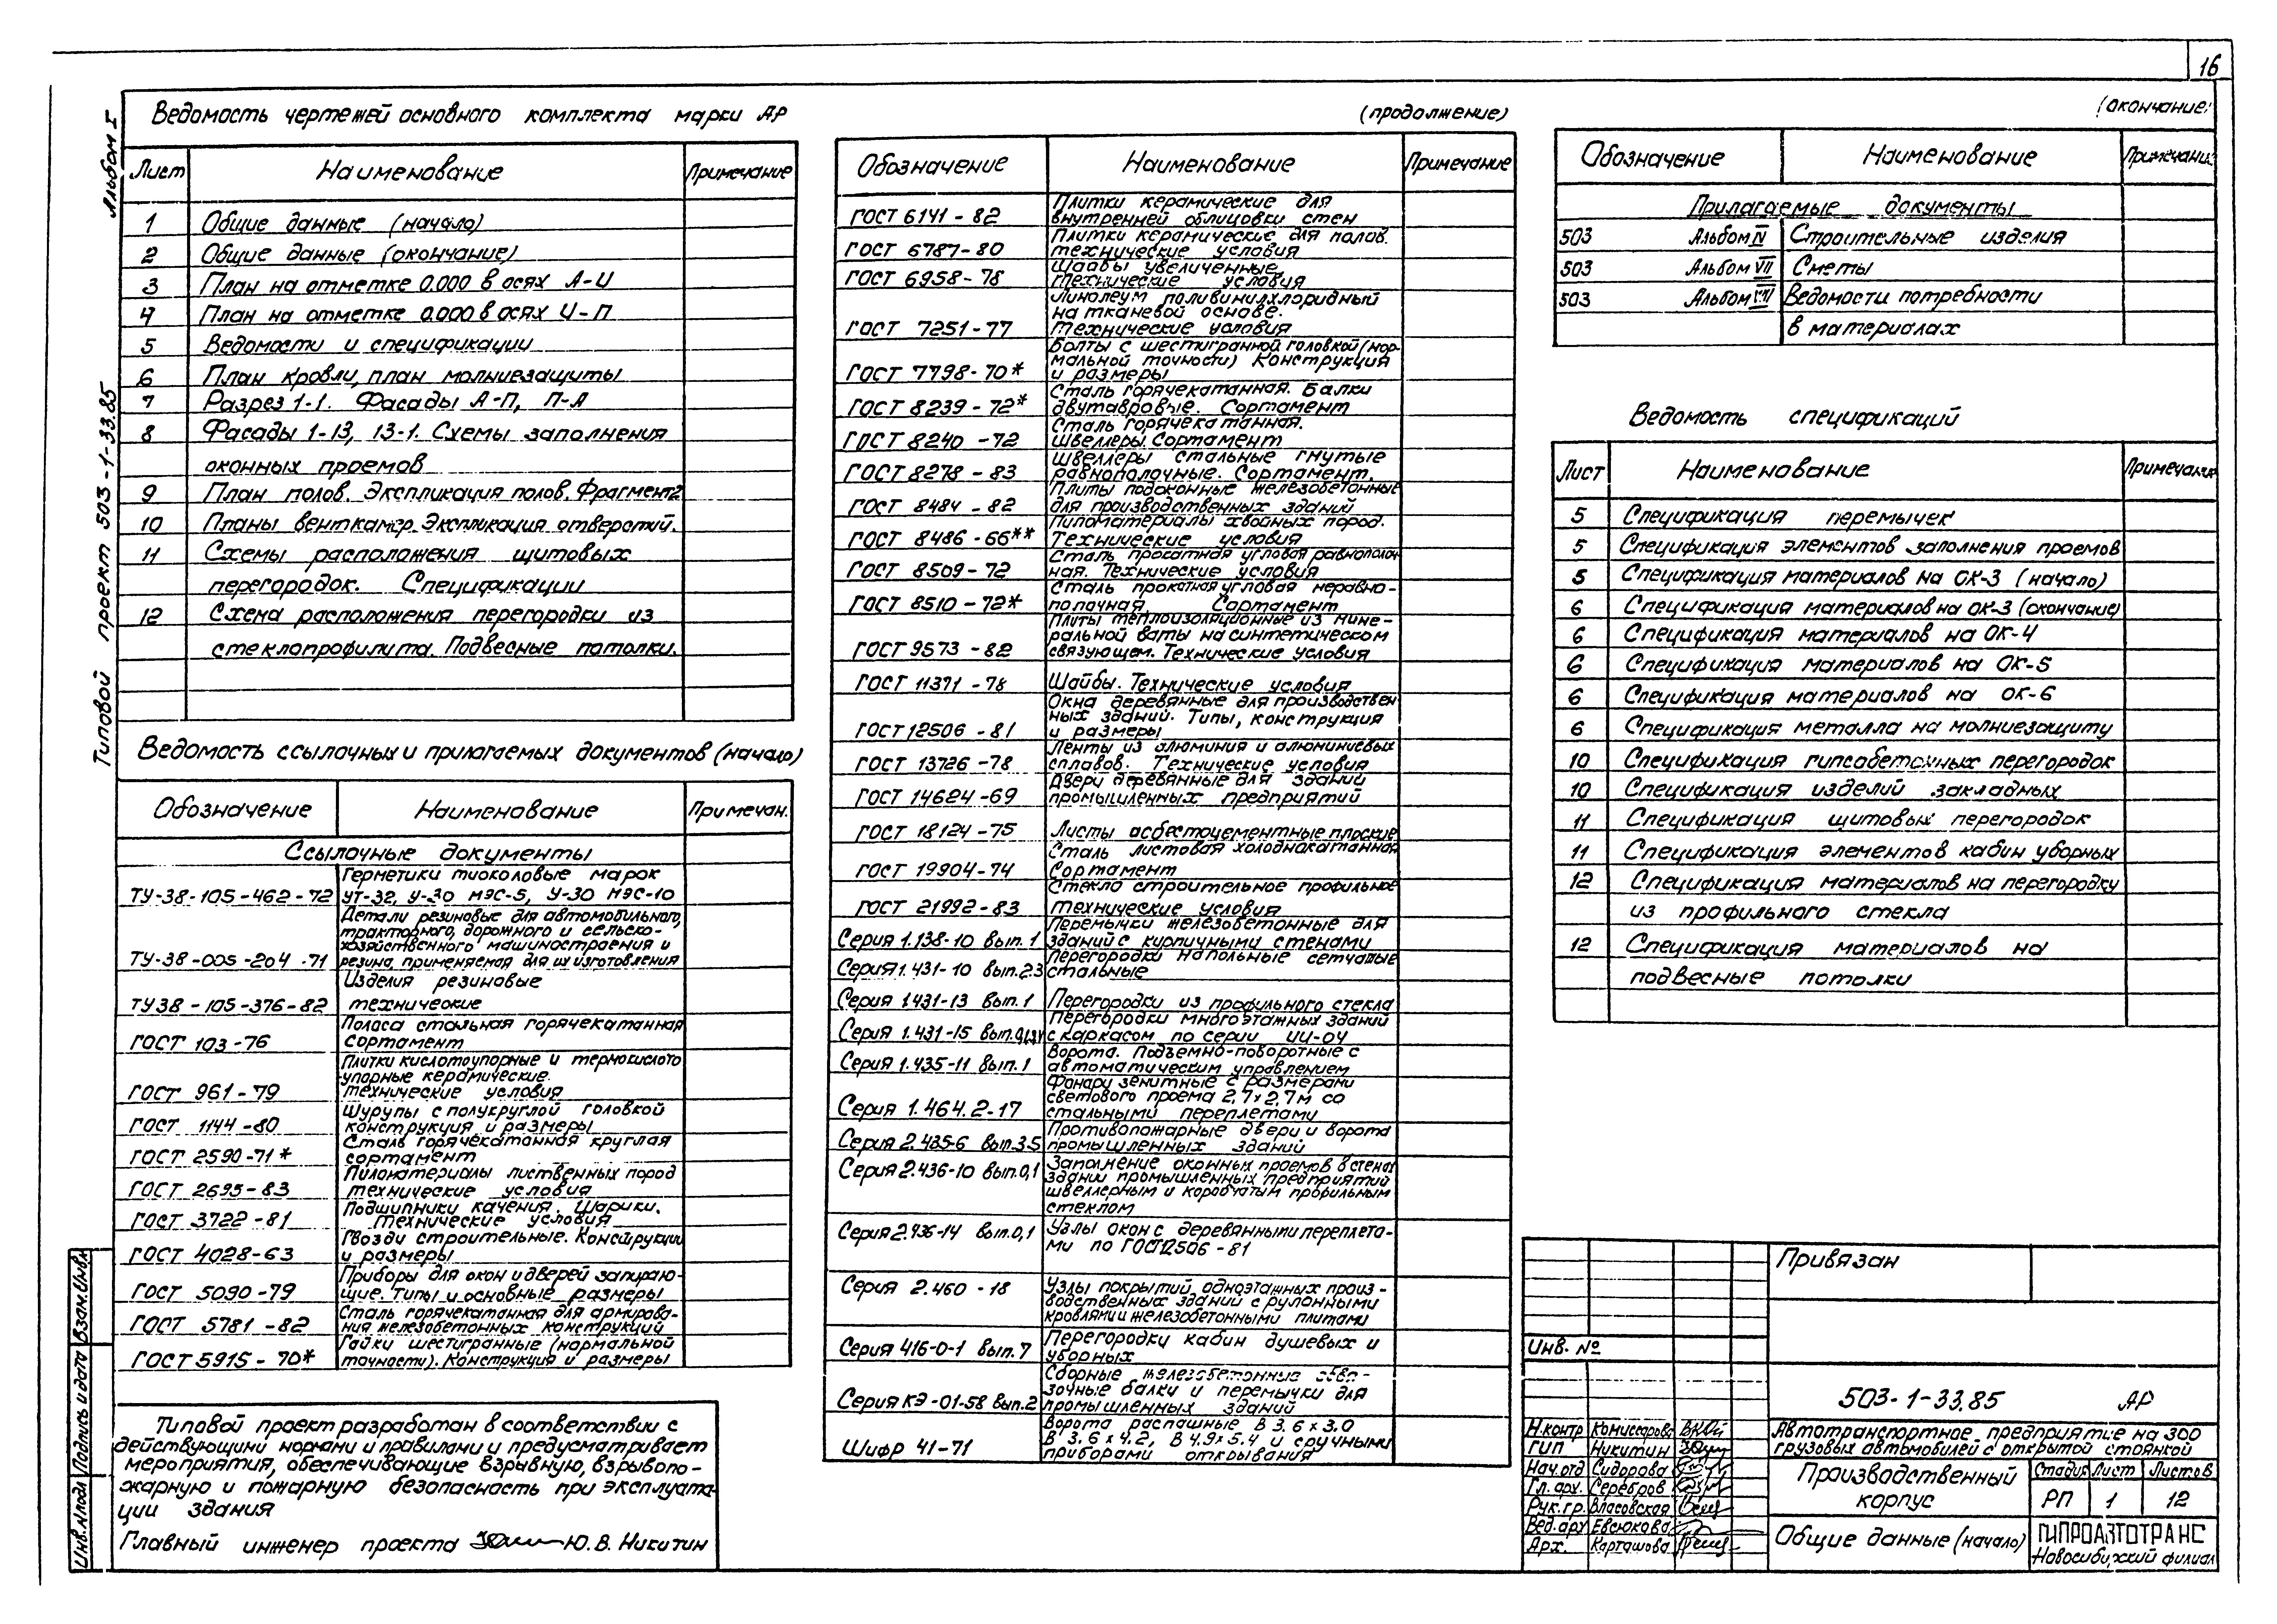 16
Альбом I
Типовой проект 503-1-33.85
Ведомость чертежей основного комплекта марки АР
Лист Наименование Примечание
1 Общие данные (начало)
2 Общие данные (окончание)
3 План на отметке 0.000 в осях А-И
4 План на отметке 0.000 в осях И-П
5 Ведомости и спецификации
6 План кровли, план молниезащиты
7 Разрез 1-1. Фасады А-П, П-А
8 Фасады 1-13, 13-1. Схемы заполнения
оконных проемов
9 План полов. Экспликация полов. Фрагмент 2
10 Планы венткамер. Экспликация отверстий.
11 Схемы расположения щитовых
перегородок. Спецификации
12 Схема расположения перегородки из
стеклопрофилита. Подвесные потолки.
Ведомость ссылочных и прилагаемых документов (начало)
Обозначение Наименование Примечан.
Ссылочные документы
Герметики тиоколовые марок
ТУ-38-105-462-72 УТ-32, У-30 МЭС-5, У-30 МЭС-10
Детали резиновые для автомобильного,
тракторного, дорожного и сельско-
хозяйственного машиностроения и
ТУ-38-005-204-71 резина, применяемая для их изготовления
Изделия резиновые
ТУ38-105-376-82 технические
Полоса стальная горячекатанная
ГОСТ 103-76 сортамент
Плитки кислотоупорные и термокислото
упорные керамические.
ГОСТ 961-79 технические условия
Шурупы с полукруглой головкой
ГОСТ 1144-80 конструкция и размеры
Сталь горячекатанная круглая
ГОСТ 2590-71* сортамент
Пиломатериалы лиственных пород
ГОСТ 2695-83 технические условия
Подшипники качения. Шарики.
ГОСТ 3722-81 технические условия
Гвозди строительные. Конструкции
ГОСТ 4028-63 и размеры
Приборы для окон и дверей запираю-
ГОСТ 5090-79 щие. Типы и основные размеры
Сталь горячекатанная для армирова-
ГОСТ 5781-82 ния железобетонных конструкций
Гайки шестигранные (нормальной
ГОСТ 5915-70* точности). Конструкция и размеры
Типовой проект разработан в соответствии с
действующими нормами и правилами и предусматривает
мероприятия, обеспечивающие взрывную, взрывопо-
жарную и пожарную безопасность при эксплуата-
ции здания
Главный инженер проекта Ю.В. Никитин
Взам.инв.№
Подпись и дата
Инв.№подл
(продолжение)
Обозначение Наименование Примечание
Плитки керамические для
ГОСТ 6141-82 внутренней облицовки стен
Плитки керамические для полов.
ГОСТ 6787-80 технические условия
Шайбы увеличенные
ГОСТ 6958-78 Технические условия
Линолеум поливинилхлоридный
на тканевой основе.
ГОСТ 7251-77 Технические условия
Болты с шестигранной головкой (нор-
мальной точности) Конструкция
ГОСТ 7798-70* и размеры
Сталь горячекатанная. Балки
ГОСТ 8239-72* двутавровые. Сортамент
Сталь горячекатанная.
ГОСТ 8240-72 Швеллеры. Сортамент
Швеллеры стальные гнутые
ГОСТ 8278-83 равнополочные. Сортамент.
Плиты подоконные железобетонные
ГОСТ 8484-82 для производственных зданий
Пиломатериалы хвойных пород.
ГОСТ 8486-66** Технические условия
Сталь прокатная угловая равнополоч
ГОСТ 8509-72 ная. Технические условия
Сталь прокатная угловая неравно-
ГОСТ 8510-72* полочная Сортамент
Плиты теплоизоляционные из мине-
ральной ваты на синтетическом
ГОСТ 9573-82 связующем. Технические условия
ГОСТ 11371-78 Шайбы. Технические условия
Окна деревянные для производствен-
ных зданий. Типы, конструкция
ГОСТ 12506-81 и размеры
Ленты из алюминия и алюминиевых
ГОСТ 13726-78 сплавов. Технические условия
Двери деревянные для зданий
ГОСТ 14624-69 промышленных предприятий
ГОСТ 18124-75 Листы асбестоцементные плоские
Сталь листовая холоднокатанная
ГОСТ 19904-74 Сортамент
Стекло строительное профильное
ГОСТ 21992-83 технические условия
Перемычки железобетонные для
Серия 1.138-10 вып.1 зданий с кирпичными стенами
Перегородки напольные сетчатые
Серия 1.431-10 вып.2,3 стальные
Серия 1.431-13 вып.1 Перегородки из профильного стекла
Перегородки многоэтажных зданий
Серия 1.431-15 с каркасом по серии ИИ-04
Ворота. Подъемно-поворотные с
Серия 1.435-11 вып.1 автоматическим управлением
Фонари зенитные с размерами
светового проема 2,7×2,7м со
Серия 1.464.2-17 стальными переплетами
Противопожарные двери и ворота
Серия 2.435-6 вып.3,5 промышленных зданий
Серия 2.436-10 вып.0,1 Заполнение оконных проемов в стенах
зданий промышленных предприятий
швеллерным и коробчатым профильным
стеклом
Серия 2.436-14 вып.0,1 Узлы окон с деревянными переплета-
ми по ГОСТ12506-81
Серия 2.460-18 Узлы покрытий одноэтажных произ-
водственных зданий с рулонными
кровлями и железобетонными плитами
Серия 416-0-1 вып.7 Перегородки кабин душевых и
уборных
Сборные железобетонные обвя-
зочные балки и перемычки для
Серия КЭ-01-58 вып.2 промышленных зданий
Ворота распашные В 3.6×3.0
В 3.6×4.2, В 4.9×5.4 и с ручными
Шифр 41-71 приборами открывания
(окончание)
Обозначение Наименование Примечание
Прилагаемые документы
503 Альбом IV Строительные изделия
503 Альбом VII Сметы
503 Альбом VIII Ведомости потребности
в материалах
Ведомость спецификаций
Лист Наименование Примечания
5 Спецификация перемычек
5 Спецификация элементов заполнения проемов
5 Спецификация материалов на ОК-3 (начало)
6 Спецификация материалов на ОК-3 (окончание)
6 Спецификация материалов на ОК-4
6 Спецификация материалов на ОК-5
6 Спецификация материалов на ОК-6
6 Спецификация металла на молниезащиту
10 Спецификация гипсобетонных перегородок
10 Спецификация изделий закладных
11 Спецификация щитовых перегородок
11 Спецификация элементов кабин уборных
12 Спецификация материалов на перегородку
из профильного стекла
12 Спецификация материалов на
подвесные потолки
Привязан
Инв. №
503-1-33.85 АР
Н.контр Комиссарова
ГИП Никитин
Нач.отд Сидорова
Гл.арх. Серебров
Рук.гр. Власовская
Вед.арх Евсюкова
Арх. Карташова
Автотранспортное предприятие на 300
грузовых автомобилей с открытой стоянкой
Производственный
корпус
Стадия Лист Листов
РП 1 12
Общие данные (начало)
ГИПРОАВТОТРАНС
Новосибирский филиал